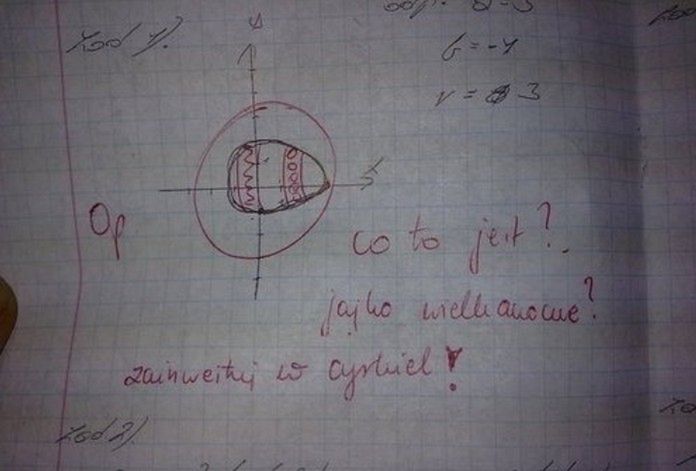 Zad 1).
b = -1
r = 3
0p
co to jest?
jajko wielkanocne?
zainwestuj w cyrkiel!
Zad 2).